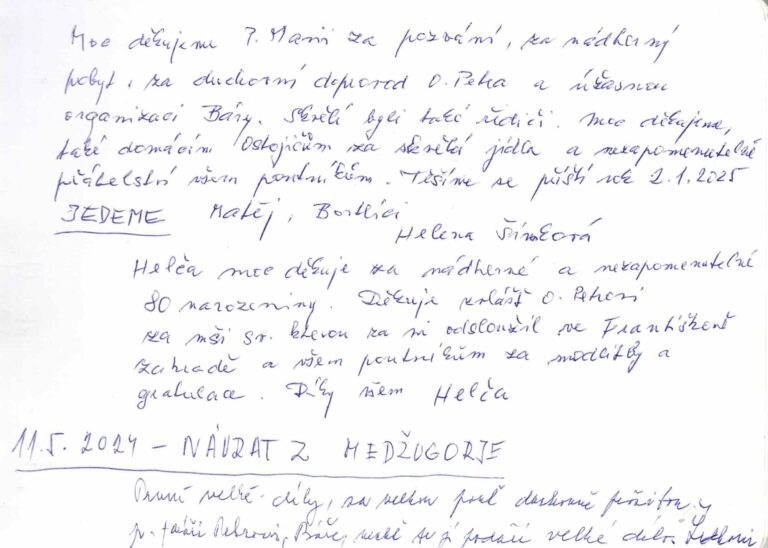 Moc děkujeme P. Marii za pozvání, za nádherný
pobyt, za duchovní doprovod O. Petra a úžasnou
organizaci Báry. Skvělí byli také řidiči. Moc děkujeme,
také domácím Ostojičům za skvělá jídla a nezapomenutelné
přátelství všem poutníkům. Těšíme se příští rok 2.1.2025
JEDEME Matěj,
Helena Šimková
Helča moc děkuje za nádherné a nezapomenutelné
80 narozeniny. Děkuje zvlášť O. Petrovi
za mši sv. kterou za mě odsloužil ve Františkově
zahradě a všem poutníkům za modlitby a
gratulace. Díky všem Helča
11.5. 2024 – NÁVRAT Z MEDŽUGORJE
První velké díky, za velkou pouť duchovně
p. Petrovi, Báře, velké